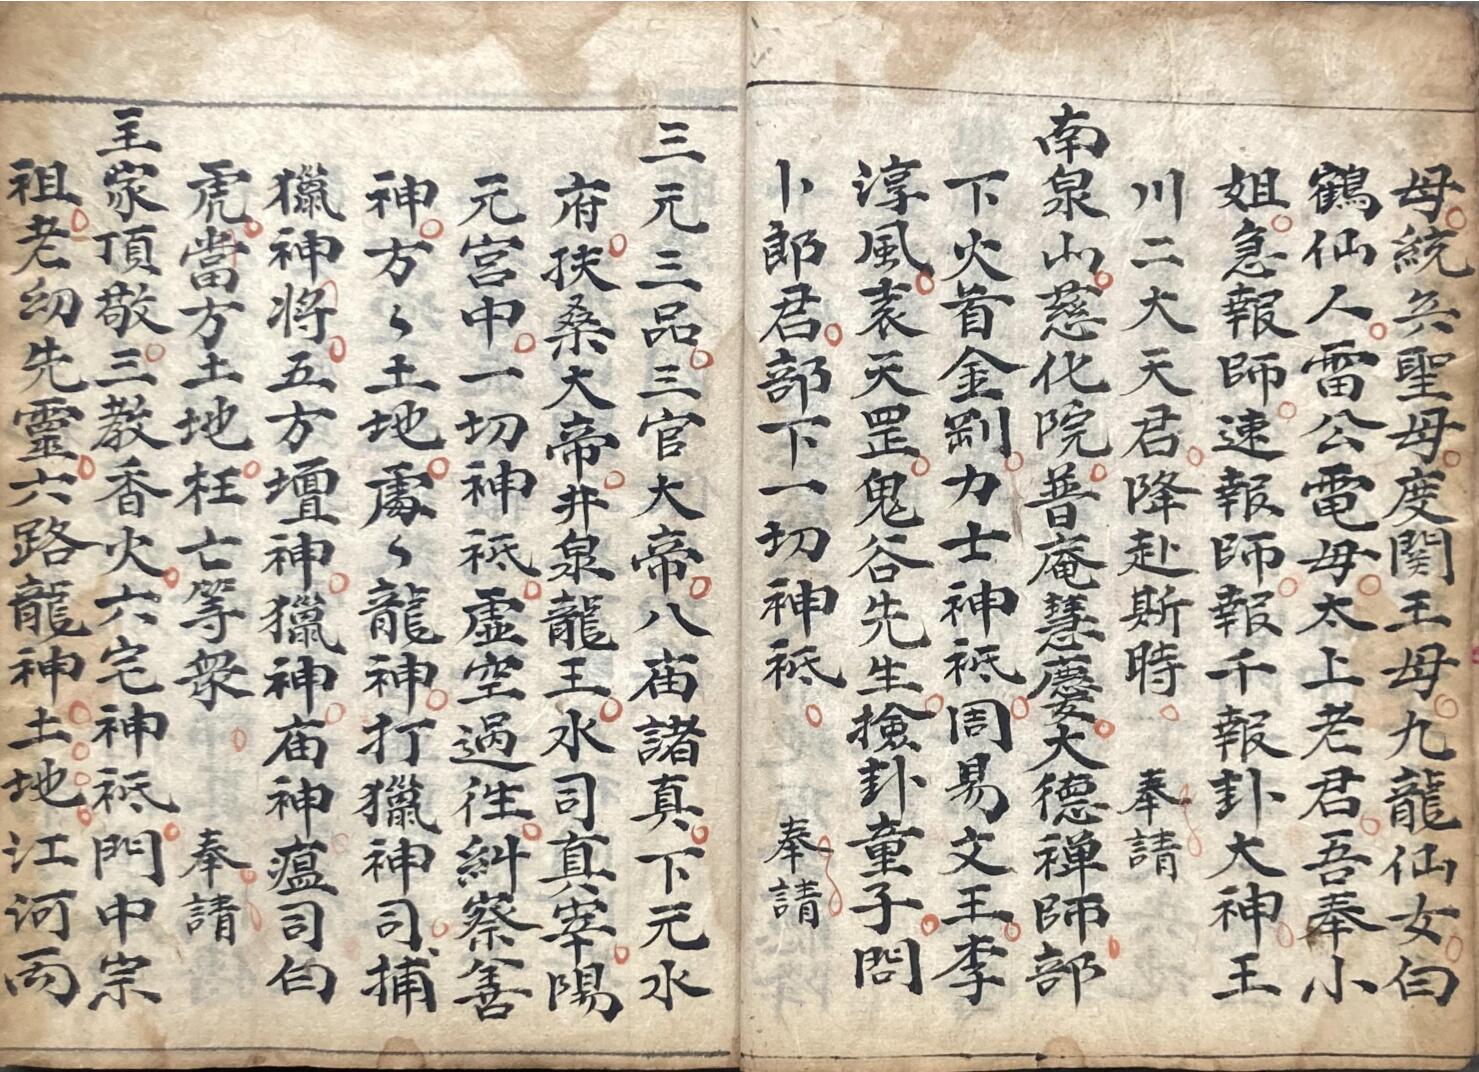 母統兵聖母度関王母九龍仙女白
鶴仙人雷公電母太上老君吾奉小
姐急報師速報師報千報卦大神王
川二大天君降赴斯時 奉請
南泉山慈化院普庵慧慶大德禅師部
下火首金剛力士神祇周易文王李
淳風袁天罡鬼谷先生撿卦童子問
卜郎君部下一切神祇 奉請
三元三品三官大帝八庙諸真下元水
府扶桑大帝井泉龍王水司真宰陽
元宮中一切神祇虚空過往糾察善
神方々土地處々龍神打獵神司捕
獵神将五方壇神獵神庙神瘟司白
虎當方土地枉亡等衆 奉請
主家頂敬三教香火六宅神祇門中宗
祖老幼先靈六路龍神土地江河両